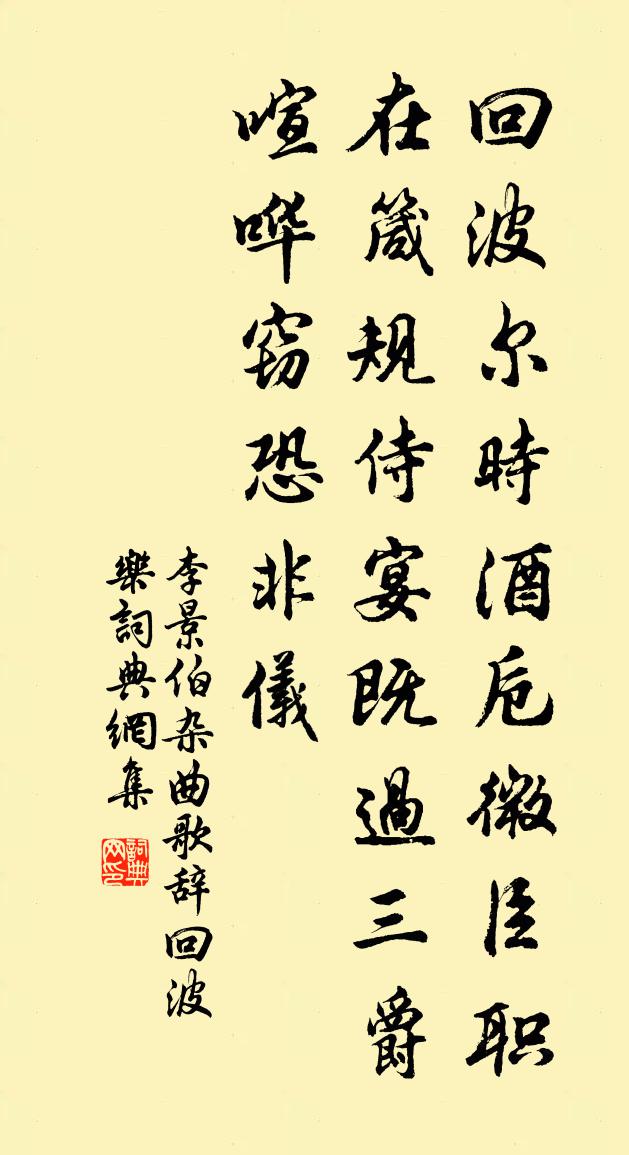 回波尔時酒卮微臣职
在箴规侍宴既過三爵
喧哗窃恐非儀
李景伯杂曲歌辞回波
樂詞典網集
詞典网印